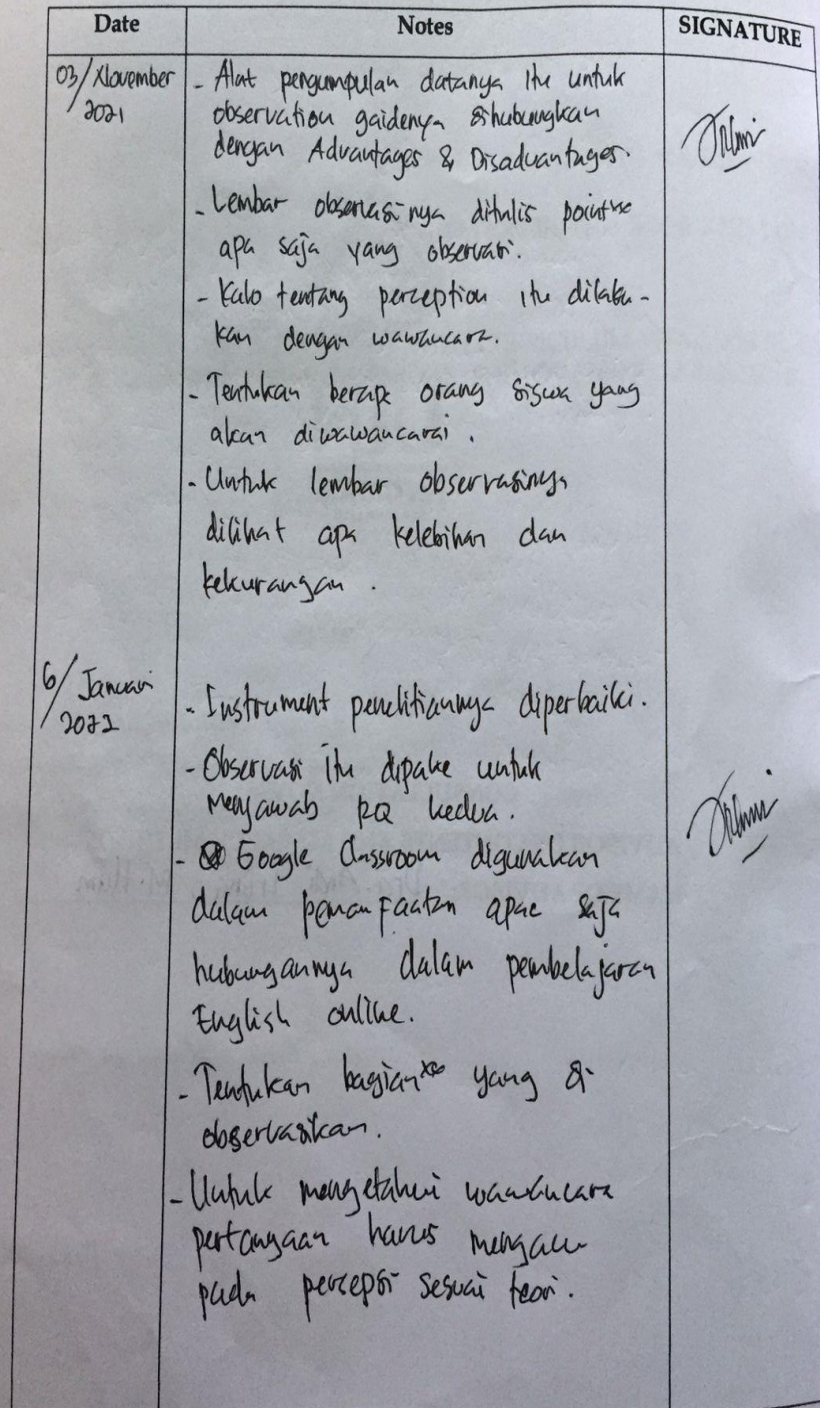 Date Notes SIGNATURE
03/November
2021
- Alat pengumpulan datanya itu untuk
observation gaidenya dihubungkan
dengan Advantages & Disadvantages.
- Lembar observasinya ditulis point
apa saja yang observasi.
- Kalo tentang perception itu dilaku-
kan dengan wawancara.
- Tentukan berapa orang siswa yang
akan diwawancarai.
- Untuk lembar observasinya
dilihat apa kelebihan dan
kekurangan.
6/Januari
- Instrument penelitiannya diperbaiki.
- Observasi itu dipake untuk
menjawab RQ kedua.
- Google Classroom digunakan
dalam pemanfaatan saja
hubungannya dalam pembelajaran
English online.
- Tentukan bagian yang di
observasikan.
- Untuk mengetahui wawancara
pertanyaan harus mengacu
pada persepsi sesuai teori.